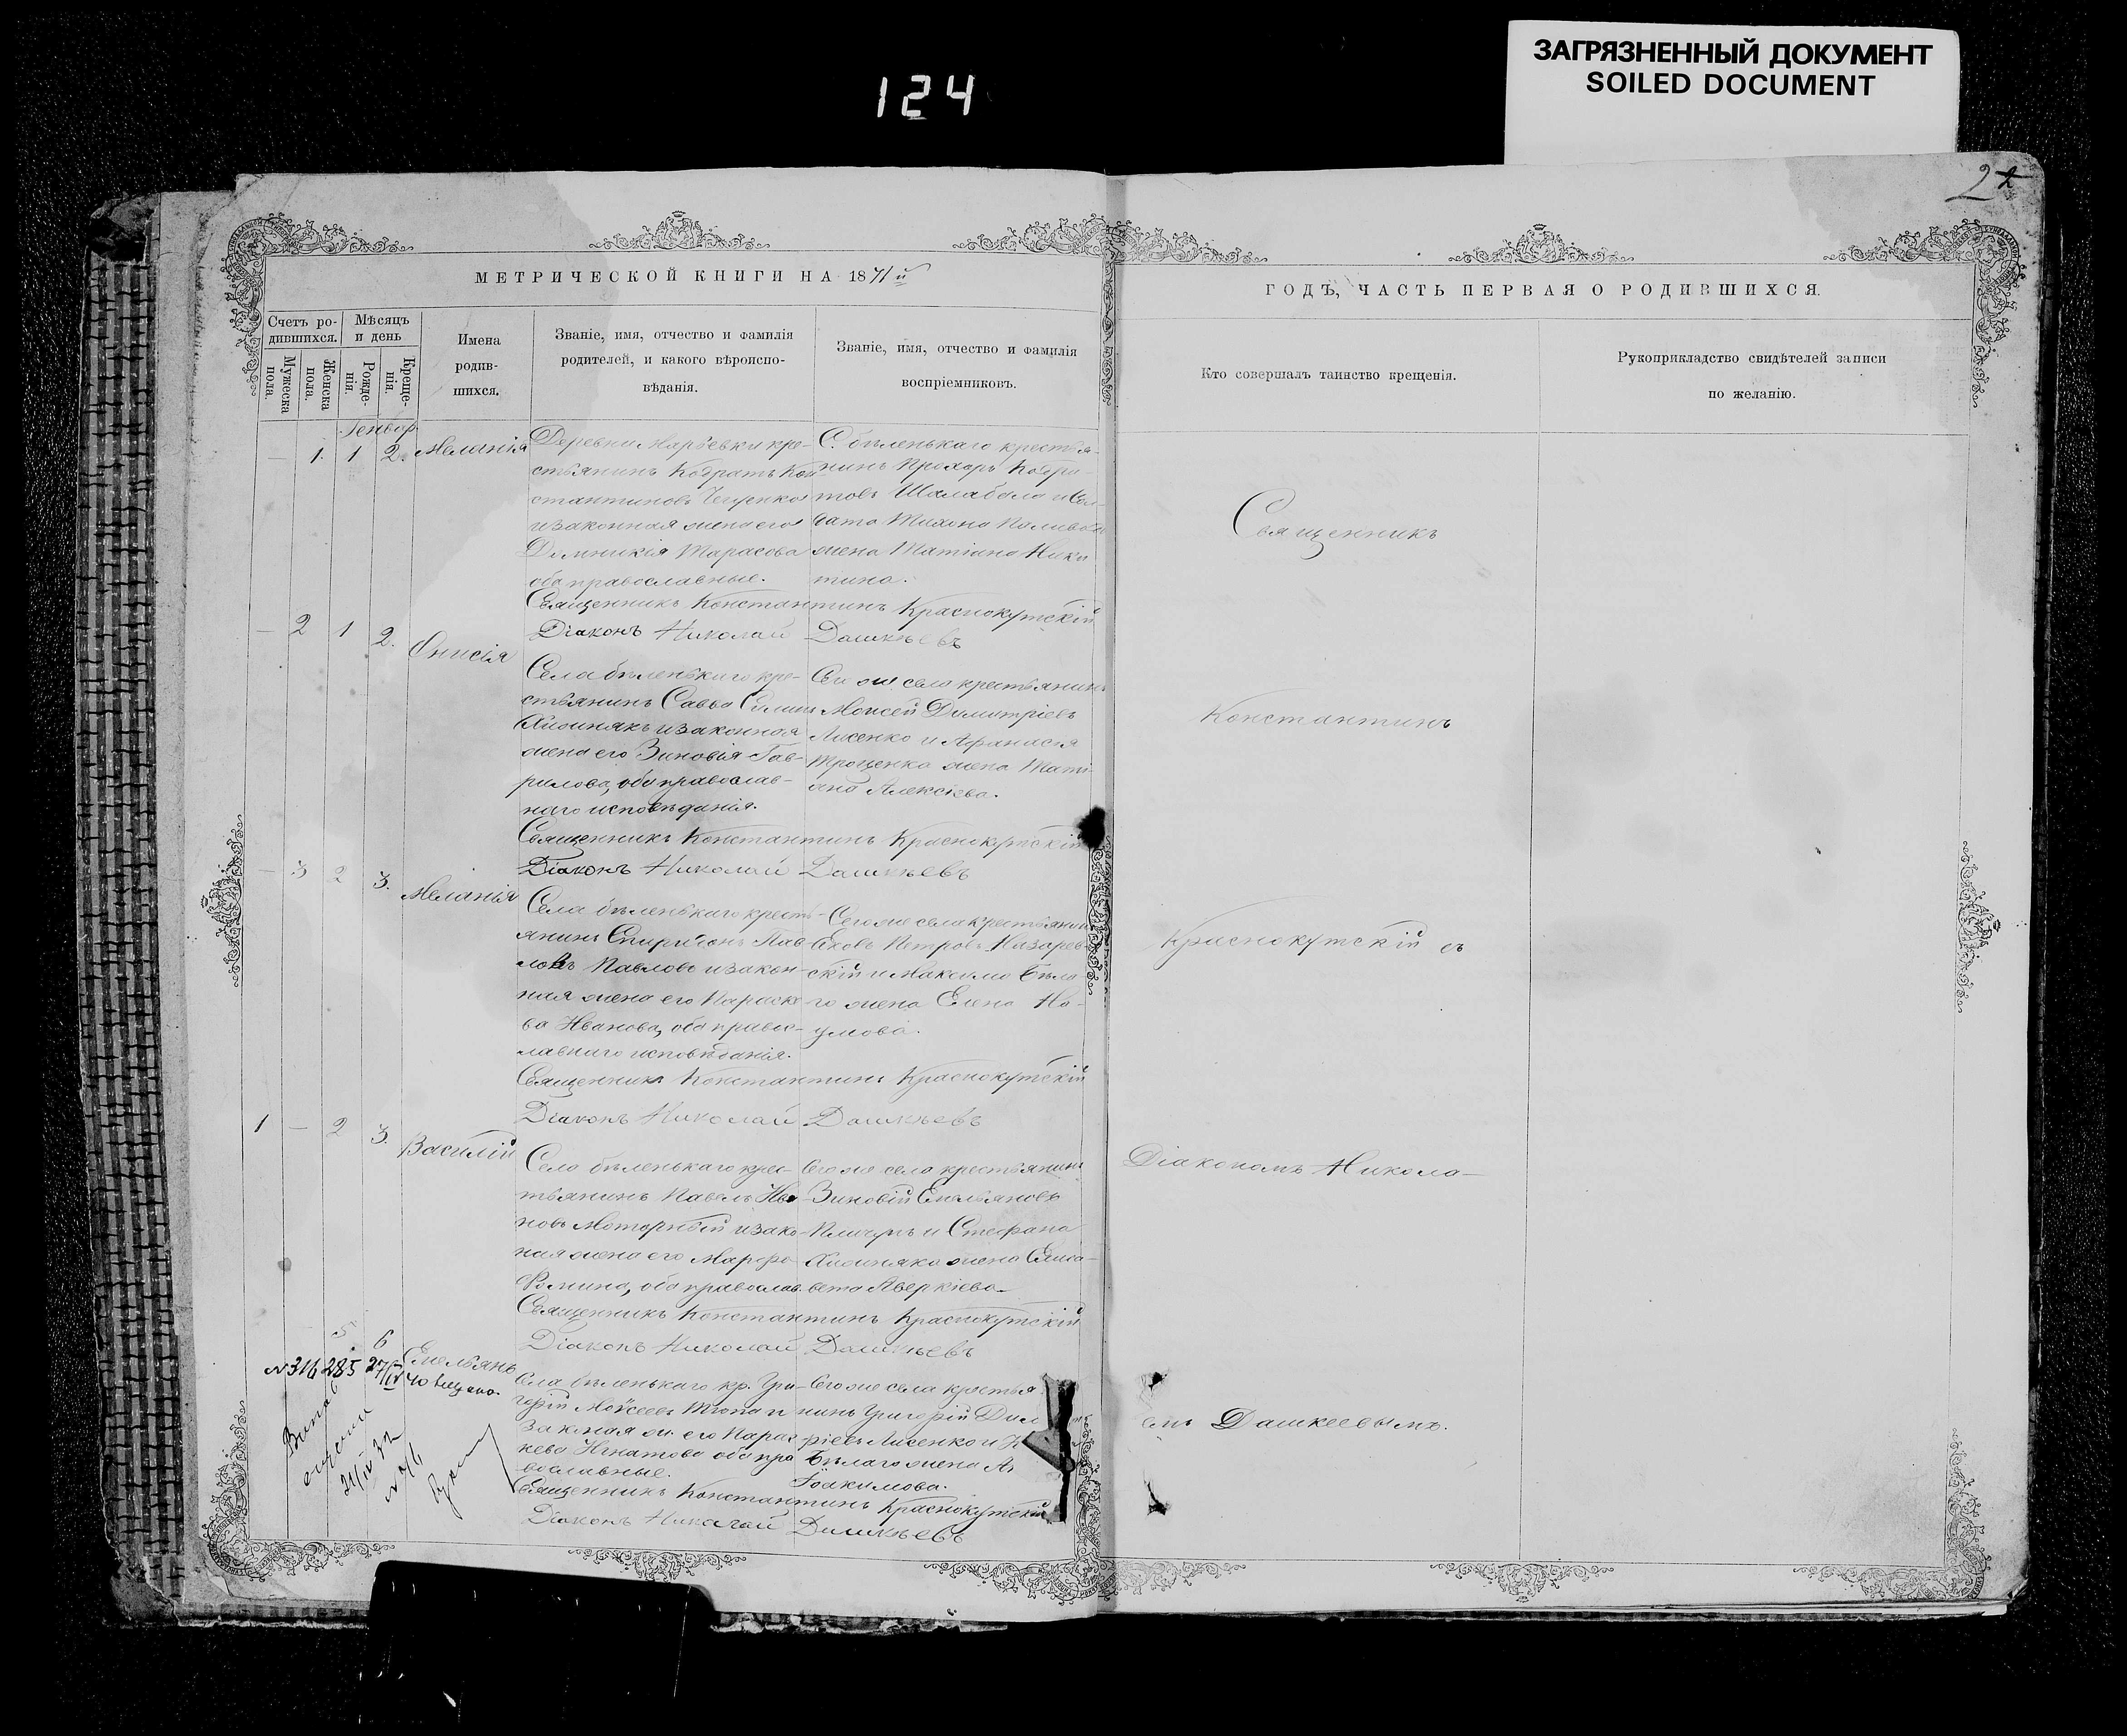 124
ЗАГРЯЗНЕННЫЙ ДОКУМЕНТ
SOILED DOCUMENT
МЕТРИЧЕСКОЙ КНИГИ НА 1871й
ГОДЪ, ЧАСТЬ ПЕРВАЯ О РОДИВШИХСЯ.
Счетъ ро-
дившихся.
Мужеска
пола.
Женска
пола.
Мѣсяцъ
и день
Рожде-
нія.
Креще-
нія.
Имена
родив-
шихся.
Званіе, имя, отчество и фамилія
родителей, и какого вѣроиспо-
вѣданія.
Званіе, имя, отчество и фамилія
воспріемниковъ.
Кто совершалъ таинство крещенія.
Рукоприкладство свидѣтелей записи
по желанію.
Генвар
— 1. 1 2. Меланія
Деревни Марьевки кре-
стьянинъ Кодратъ Кон
стантиновъ
и законная жена его
Домникія Тарасова
оба православные.
С. бѣленькаго крестья-
нинъ Прохоръ Кодра-
товъ Шалабала и Сол-
дата Тихона
жена Татіана Ники
тина.
Священникъ Константинъ Краснокутскій
Діаконъ Николай Дашкѣевъ
— 2 1 2. Онисія
Села бѣленькаго кре-
стьянинъ Савва
и законная
жена его Зиновія Гав-
рилова, оба православ-
наго исповѣданія.
Его же села крестьянинъ
Моисей Димитріевъ
Лисенко и Афанасія
Троценка жена Таті-
ана Алексіева.
Священникъ Константинъ Краснокутскій
Діаконъ Николай Дашкѣевъ
— 3 2 3. Меланія
Села бѣленькаго кресть-
янинъ Спиридонъ Пав-
ловъ Павловъ и закон-
ная жена его Параске
ва Иванова, оба правос-
лавнаго исповѣданія.
Сего же села крестьянин
Яковъ Петровъ Назарев
скій и Максима Бѣла
го жена Елена На-
умова.
Священникъ Константинъ Краснокутскій
Діаконъ Николай Дашкѣевъ
1 — 2 3. Василій
Села бѣленькаго крес-
тьянинъ Павелъ Ива-
новъ Моторный и зако-
ная жена его Марфа
Фомина, оба православ.
Его же села крестьянинъ
Зиновій Емельяновъ
и Стефана
жена Елиса-
вета Аверкіева.
Священникъ Константинъ Краснокутскій
Діаконъ Николай Дашкѣевъ
5. 6 Емельянъ
№316 285 27/IV
Села бѣленькаго кр. Гри-
горій Моѵсеевъ
законая ж. его Парас
кева Игнатова оба пра
вославные.
Его же села крестья
нинъ Григорій Дим
ріевъ Лисенко и
Бѣлаго жена А
Іоакимова.
Священникъ Константинъ Краснокутскій
Діаконъ Николай Дашкѣевъ
Священникъ
Константинъ
Краснокутскій съ
Діакономъ Никола-
емъ Дашкеевымъ.